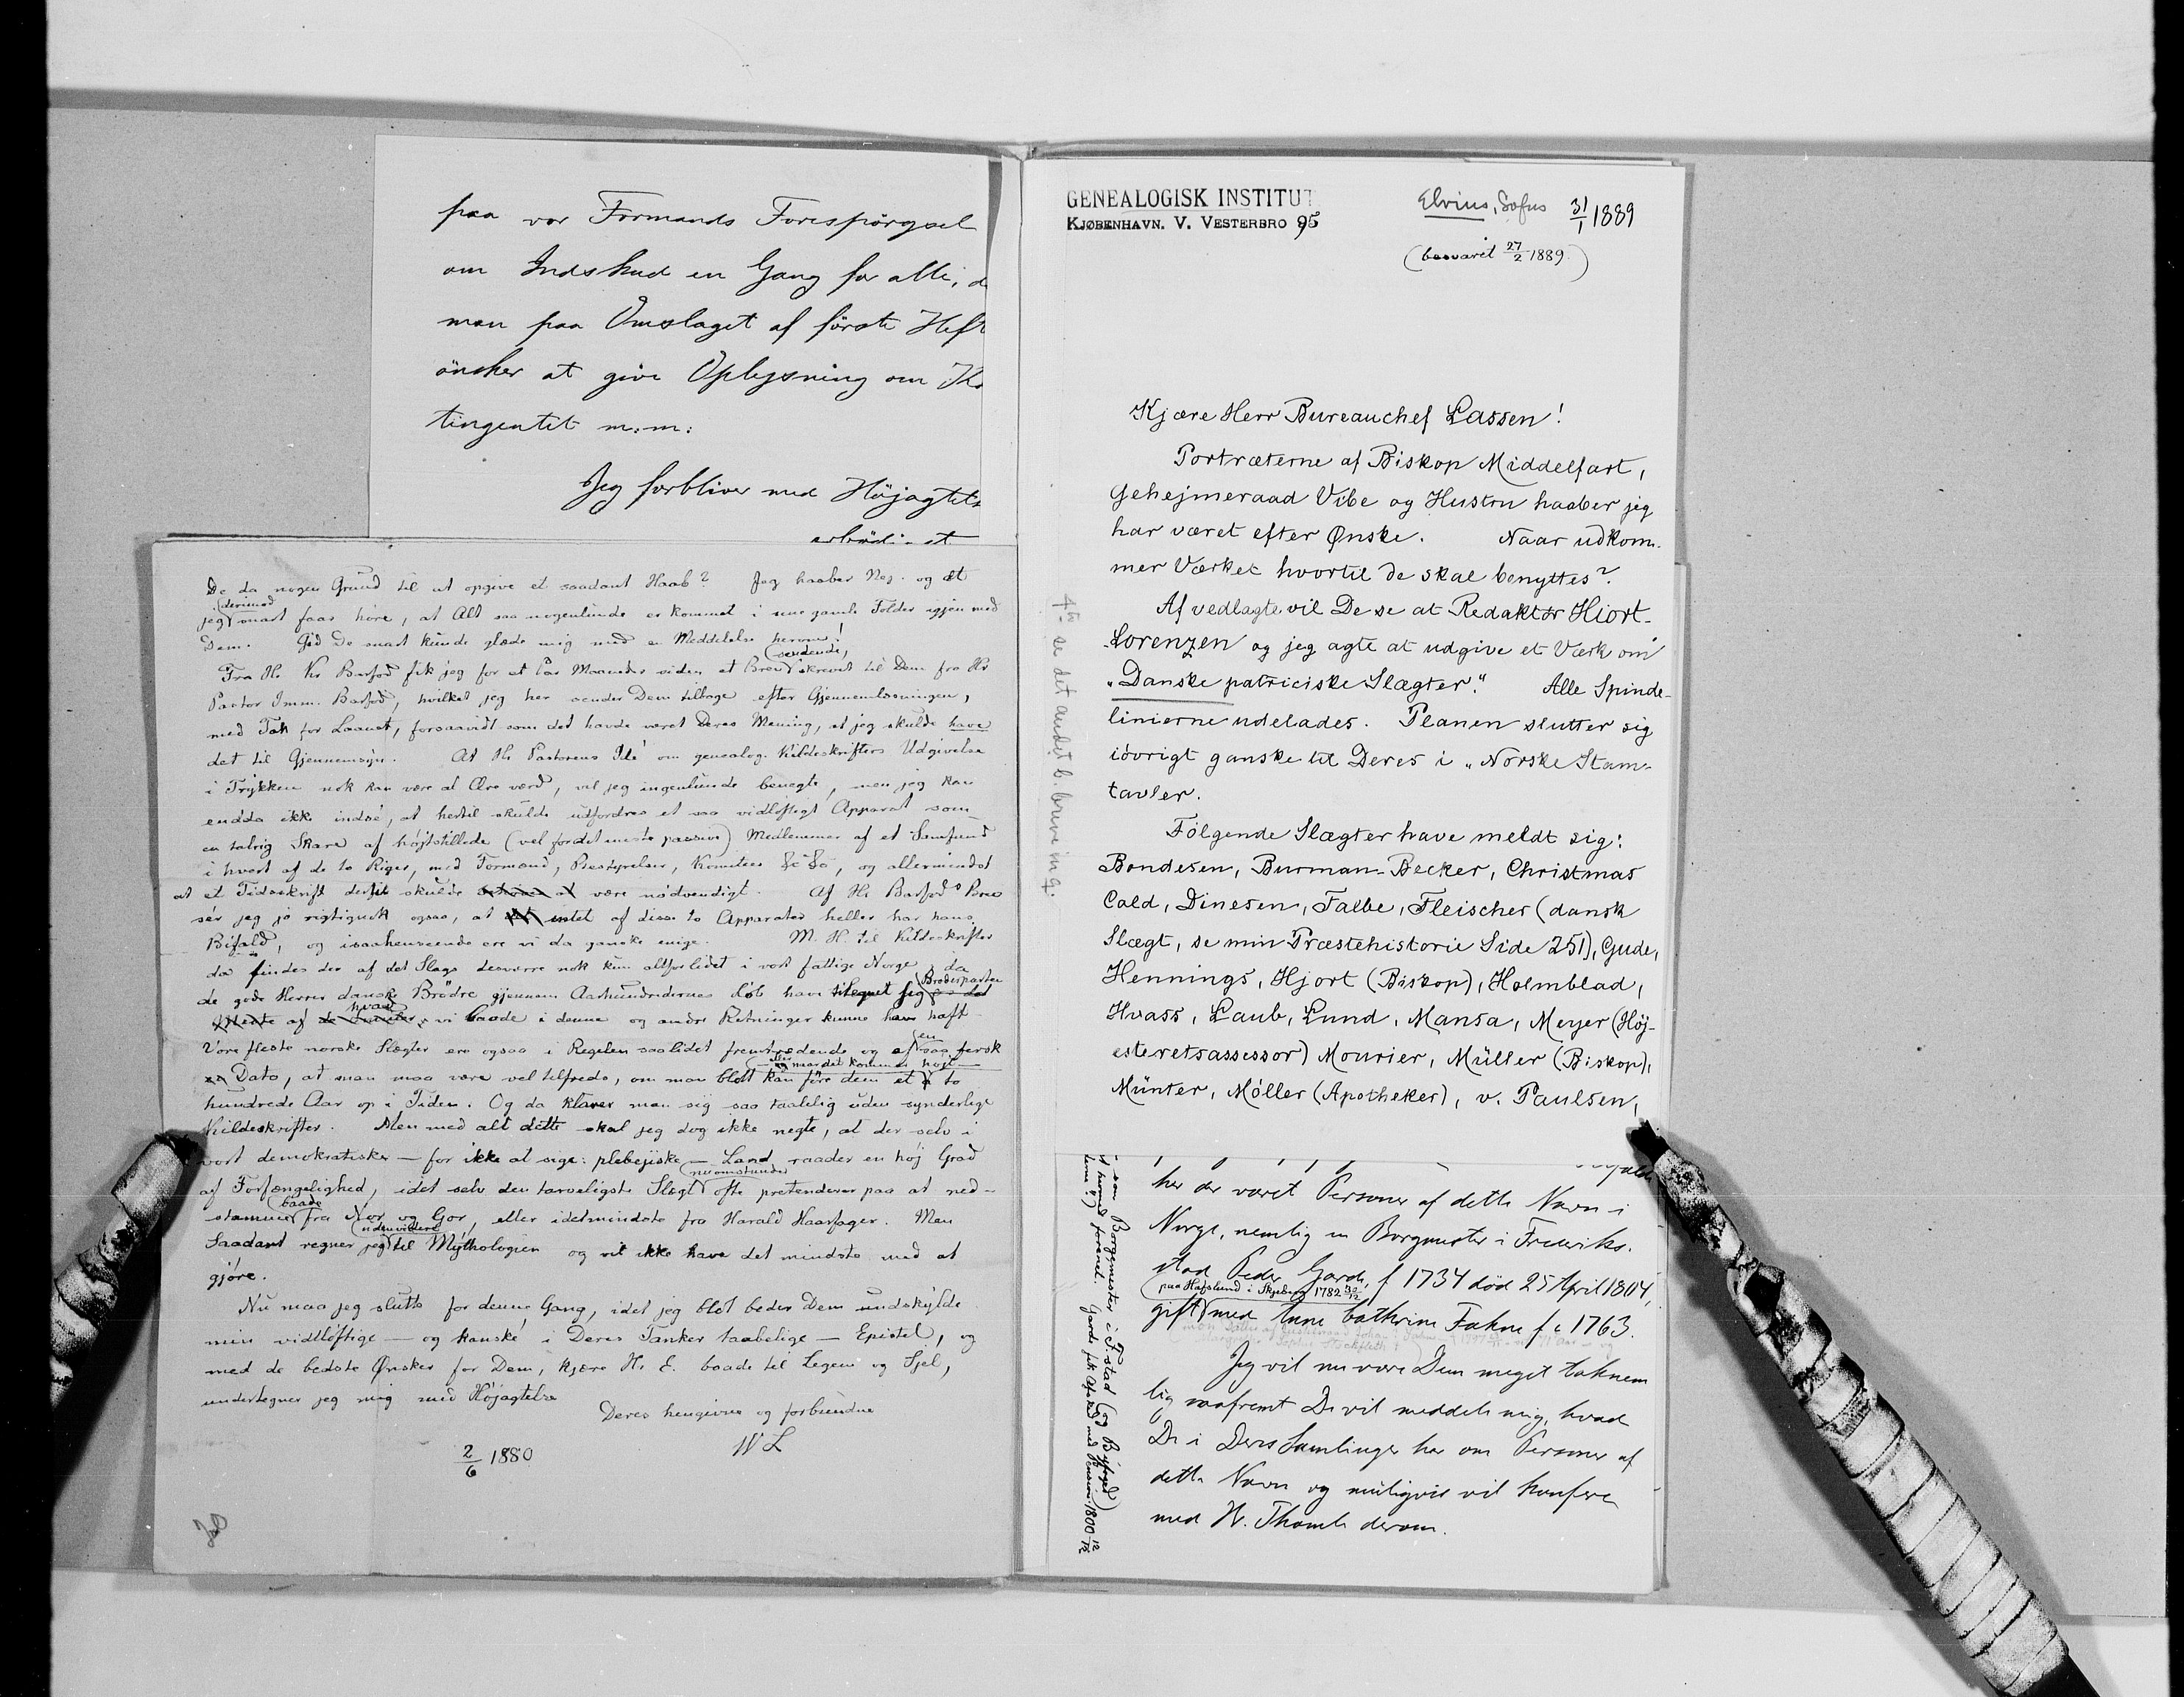 paa vor Formands Forespörgsel
om Indskud en Gang for alle, d
man paa Omslaget af förste Heft
önsker at give Oplysning om Ko
tingentet m:m:
Jeg forbliver med Höjagtels
ærbödigst
De da nogen Grund til at opgive et saadant Haab? Jeg haaber Nej. og at
jeg (derimod) snart faar höre, at Alt saa nogenlunde er kommet i sine gamle Folder igjen med
Dem. Gid De snart kunde glæde mig med en Meddelelse herom!
Fra Hr Kr Barfod fik jeg for et Par Maaneder siden et Brev (sendende), skrevet til Dem fra Hr
Pastor Imm. Barfod, hvilket jeg her sender Dem tilbage efter Gjennemlæsningen,
med Tak for Laanet, forsaavidt som det havde været Deres Mening, at jeg skulde have
det til Gjennemsyn. At Hr Pastorens Idé om genealog. Kildeskrifters Udgivelse
i Trykken nok kan være al Ære værd, vil jeg ingenlunde benegte, men jeg kan
endda ikke indsé, at hertil skulde udfordres et saa vidtlöftigt Apparat som
en talrig Skare af höjtstillede (vel fordetmeste passive) Medlemmer af et Samfund
i hvert af de to Riger, med Formænd, Bestyrelser, Komiteer &c &c, og allermindst
at et Tidsskrift dertil skulde være nödvendigt. Af Hr Barfods Brev
sér jeg jo rigtignok ogsaa, at intet af disse to Apparater heller har hans
Bifald, og isaahenseende ere vi da ganske enige. M. H. til Kildeskrifter
da findes der af det Slags desværre nok kun altforlidet i vort fattige Norge, da
de gode Herrer danske Brödre gjennem Aarhundredernes Löb have tilegnet sig Brodersparten
af hvad vi baade i denne og andre Retninger kunne have haft.
Vore fleste norske Slægter ere ogsaa i Regelen saalidet fremtrædende og af en saa fersk
Dato, at man maa være vel tilfreds, om man blott kan före dem et — eller naar det kommer höjt — to
hundrede Aar op i Tiden. Og da klarer man sig saa taalelig uden synderlige
Kildeskrifter. Men med alt dette skal jeg dog ikke negte, at der selv i
vort demokratiske — for ikke at sige: plebejiske — Land raader en höj Grad
af Forfængelighed, idet selv den tarveligste Slægt (nuomstunder) ofte pretenderer paa at ned-
stamme (baade) fra Nor og Gor, eller idetmindste fra Harald Haarfager. Men
Saadant regner jeg (udenvidere) til Mythologien og vil ikke have det mindste med at
gjöre.
Nu maa jeg slutte for denne Gang, idet jeg blot beder Dem undskylde
min vidtlöftige — og kanske i Deres Tanker taabelige — Epistel, og
med de bedste Ønsker for Dem, kjære Hr E. baade til Legeme og Sjel,
undertegner jeg mig med Höjagtelse
Deres hengivne og forbundne
W L
2/6 1880
GENEALOGISK INSTITUT
KJØBENHAVN. V. VESTERBRO 95
Elvius, Sofus 31/1 1889
(besvaret 27/2 1889.)
Kjære Herr Bureauchef Lassen!
Portræterne af Biskop Middelfart,
Gehejmeraad Vibe og Hustru haaber jeg
har været efter Ønske. Naar udkom-
mer Værket hvortil de skal benyttes?
Af vedlagte vil De se at Redaktør Hiort-
Lorenzen og jeg agte at udgive et Værk om
"Danske patriciske Slægter." Alle Spinde-
linierne udelades. Planen slutter sig
iövrigt ganske til Deres i "Norske Stam-
tavler.
Fölgende Slægter have meldt sig:
Bondesen, Burman-Becker, Christmas
Cold, Dinesen, Falbe, Fleischer (dansk
Slægt, se min Præstehistorie Side 251), Gude,
Hennings, Hjort (Biskop), Holmblad,
Hvass, Laub, Lund, Mansa, Meyer (Höj-
esteretsassessor) Mourier, Müller (Biskop),
Münter, Möller (Apotheker), v. Paulsen,
her der været Personer af dette Navn i
Norge, nemlig en Borgmester i Frederiks-
stad Peder Garde, f 1734 död 25 April 1804,
(paa Hafslund i Skjeberg 1782 30/12)
gift med Anne Cathrine Fahne f c 1763.
Jeg vil nu være Dem meget taknem
lig saafremt De vil meddele mig, hvad
De i Deres Samlinger har om Personer af
dette Navn og muligvis vil konferere
med H. Thomle derom.